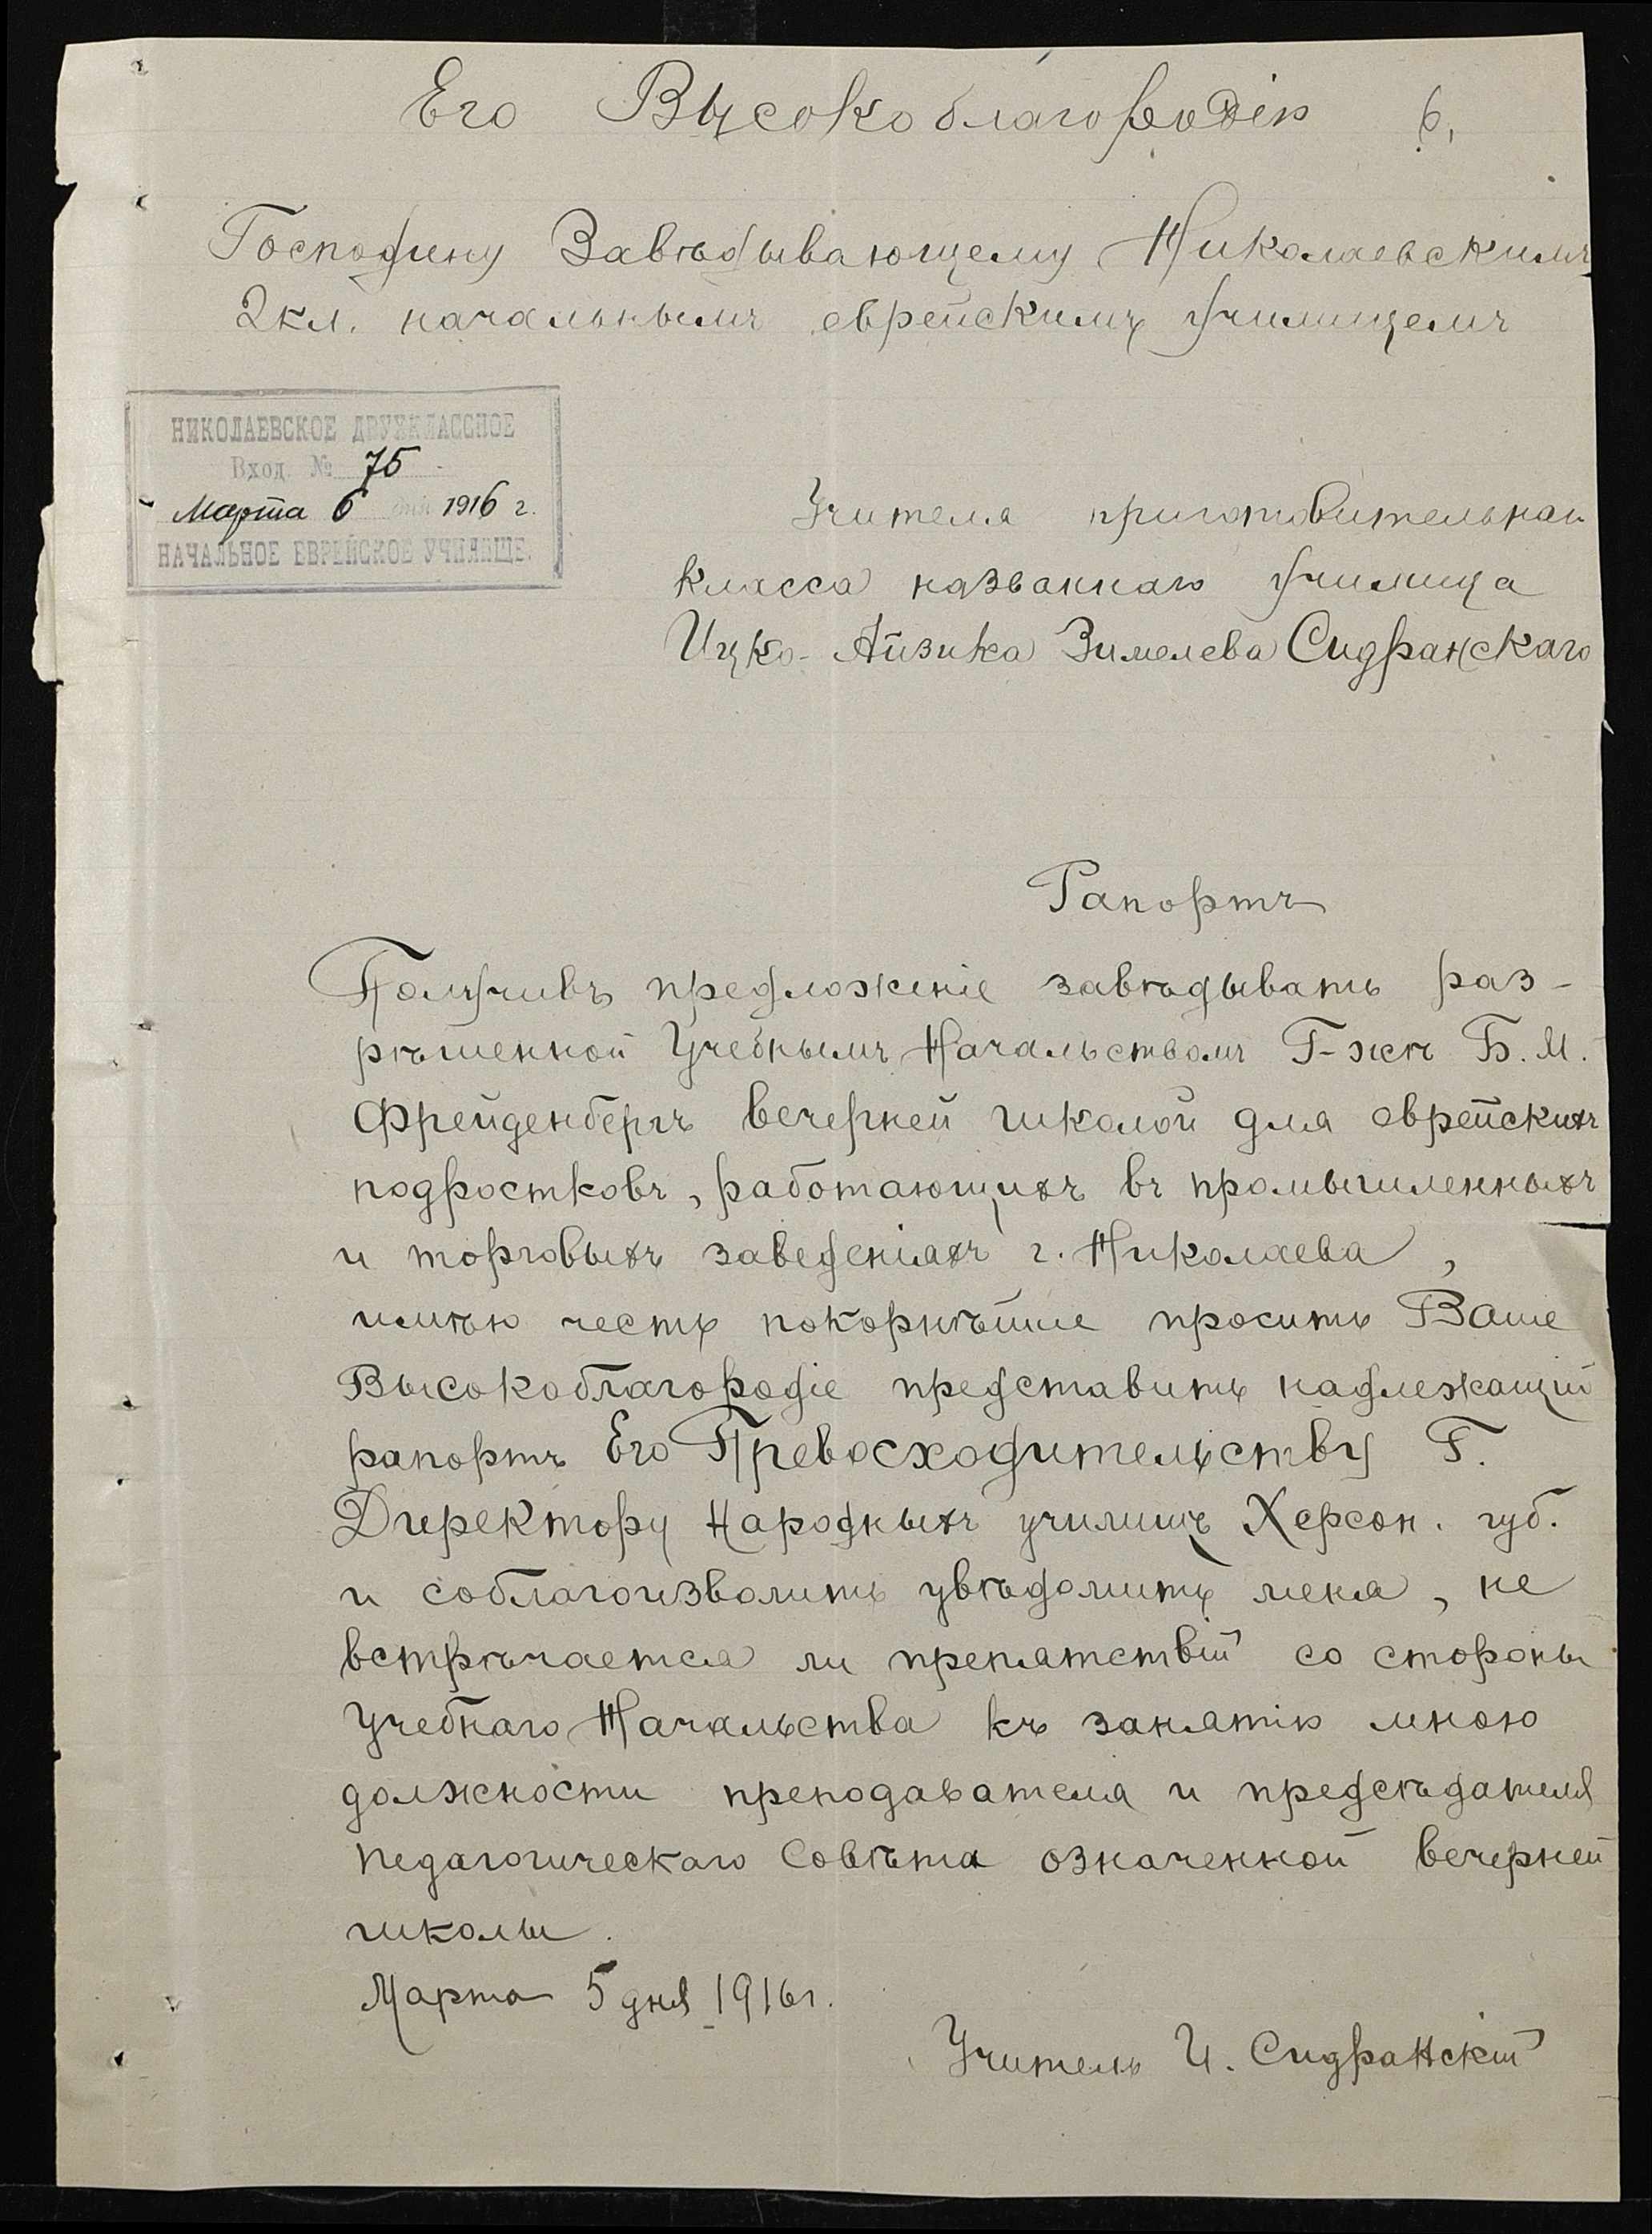 Его Высокоблагородію 6,
Господину Завѣдывающему Николаевскимъ
2кл. начальнымъ еврейскимъ училищемъ
НИКОЛАЕВСКОЕ ДВУХКЛАССНОЕ
Вход. № 75
Марта 6 дня 1916 г.
НАЧАЛЬНОЕ ЕВРЕЙСКОЕ УЧИЛИЩЕ.
Учителя приготовительнаго
класса названнаго училища
Ицко-Айзика Зимелева Сидранскаго
Рапортъ
Получивъ предложеніе завѣдывать раз-
рѣшенной Учебнымъ Начальствомъ Г-жѣ Б. М.
Фрейденбергъ вечерней школой для еврейскихъ
подростковъ, работающихъ въ промышленныхъ
и торговыхъ заведеніяхъ г. Николаева,
имѣю честь покорнѣйше просить Ваше
Высокоблагородіе представить надлежащій
рапортъ Его Превосходительству Г.
Директору Народныхъ училищъ Херсон. губ.
и соблаговизволить увѣдомить меня, не
встрѣчается ли препятствій со стороны
Учебнаго Начальства къ занятію мною
должности преподавателя и предсѣдателя
педагогическаго Совѣта означенной вечерней
школы.
Марта 5 дня 1916г.
Учитель И. Сидранскій